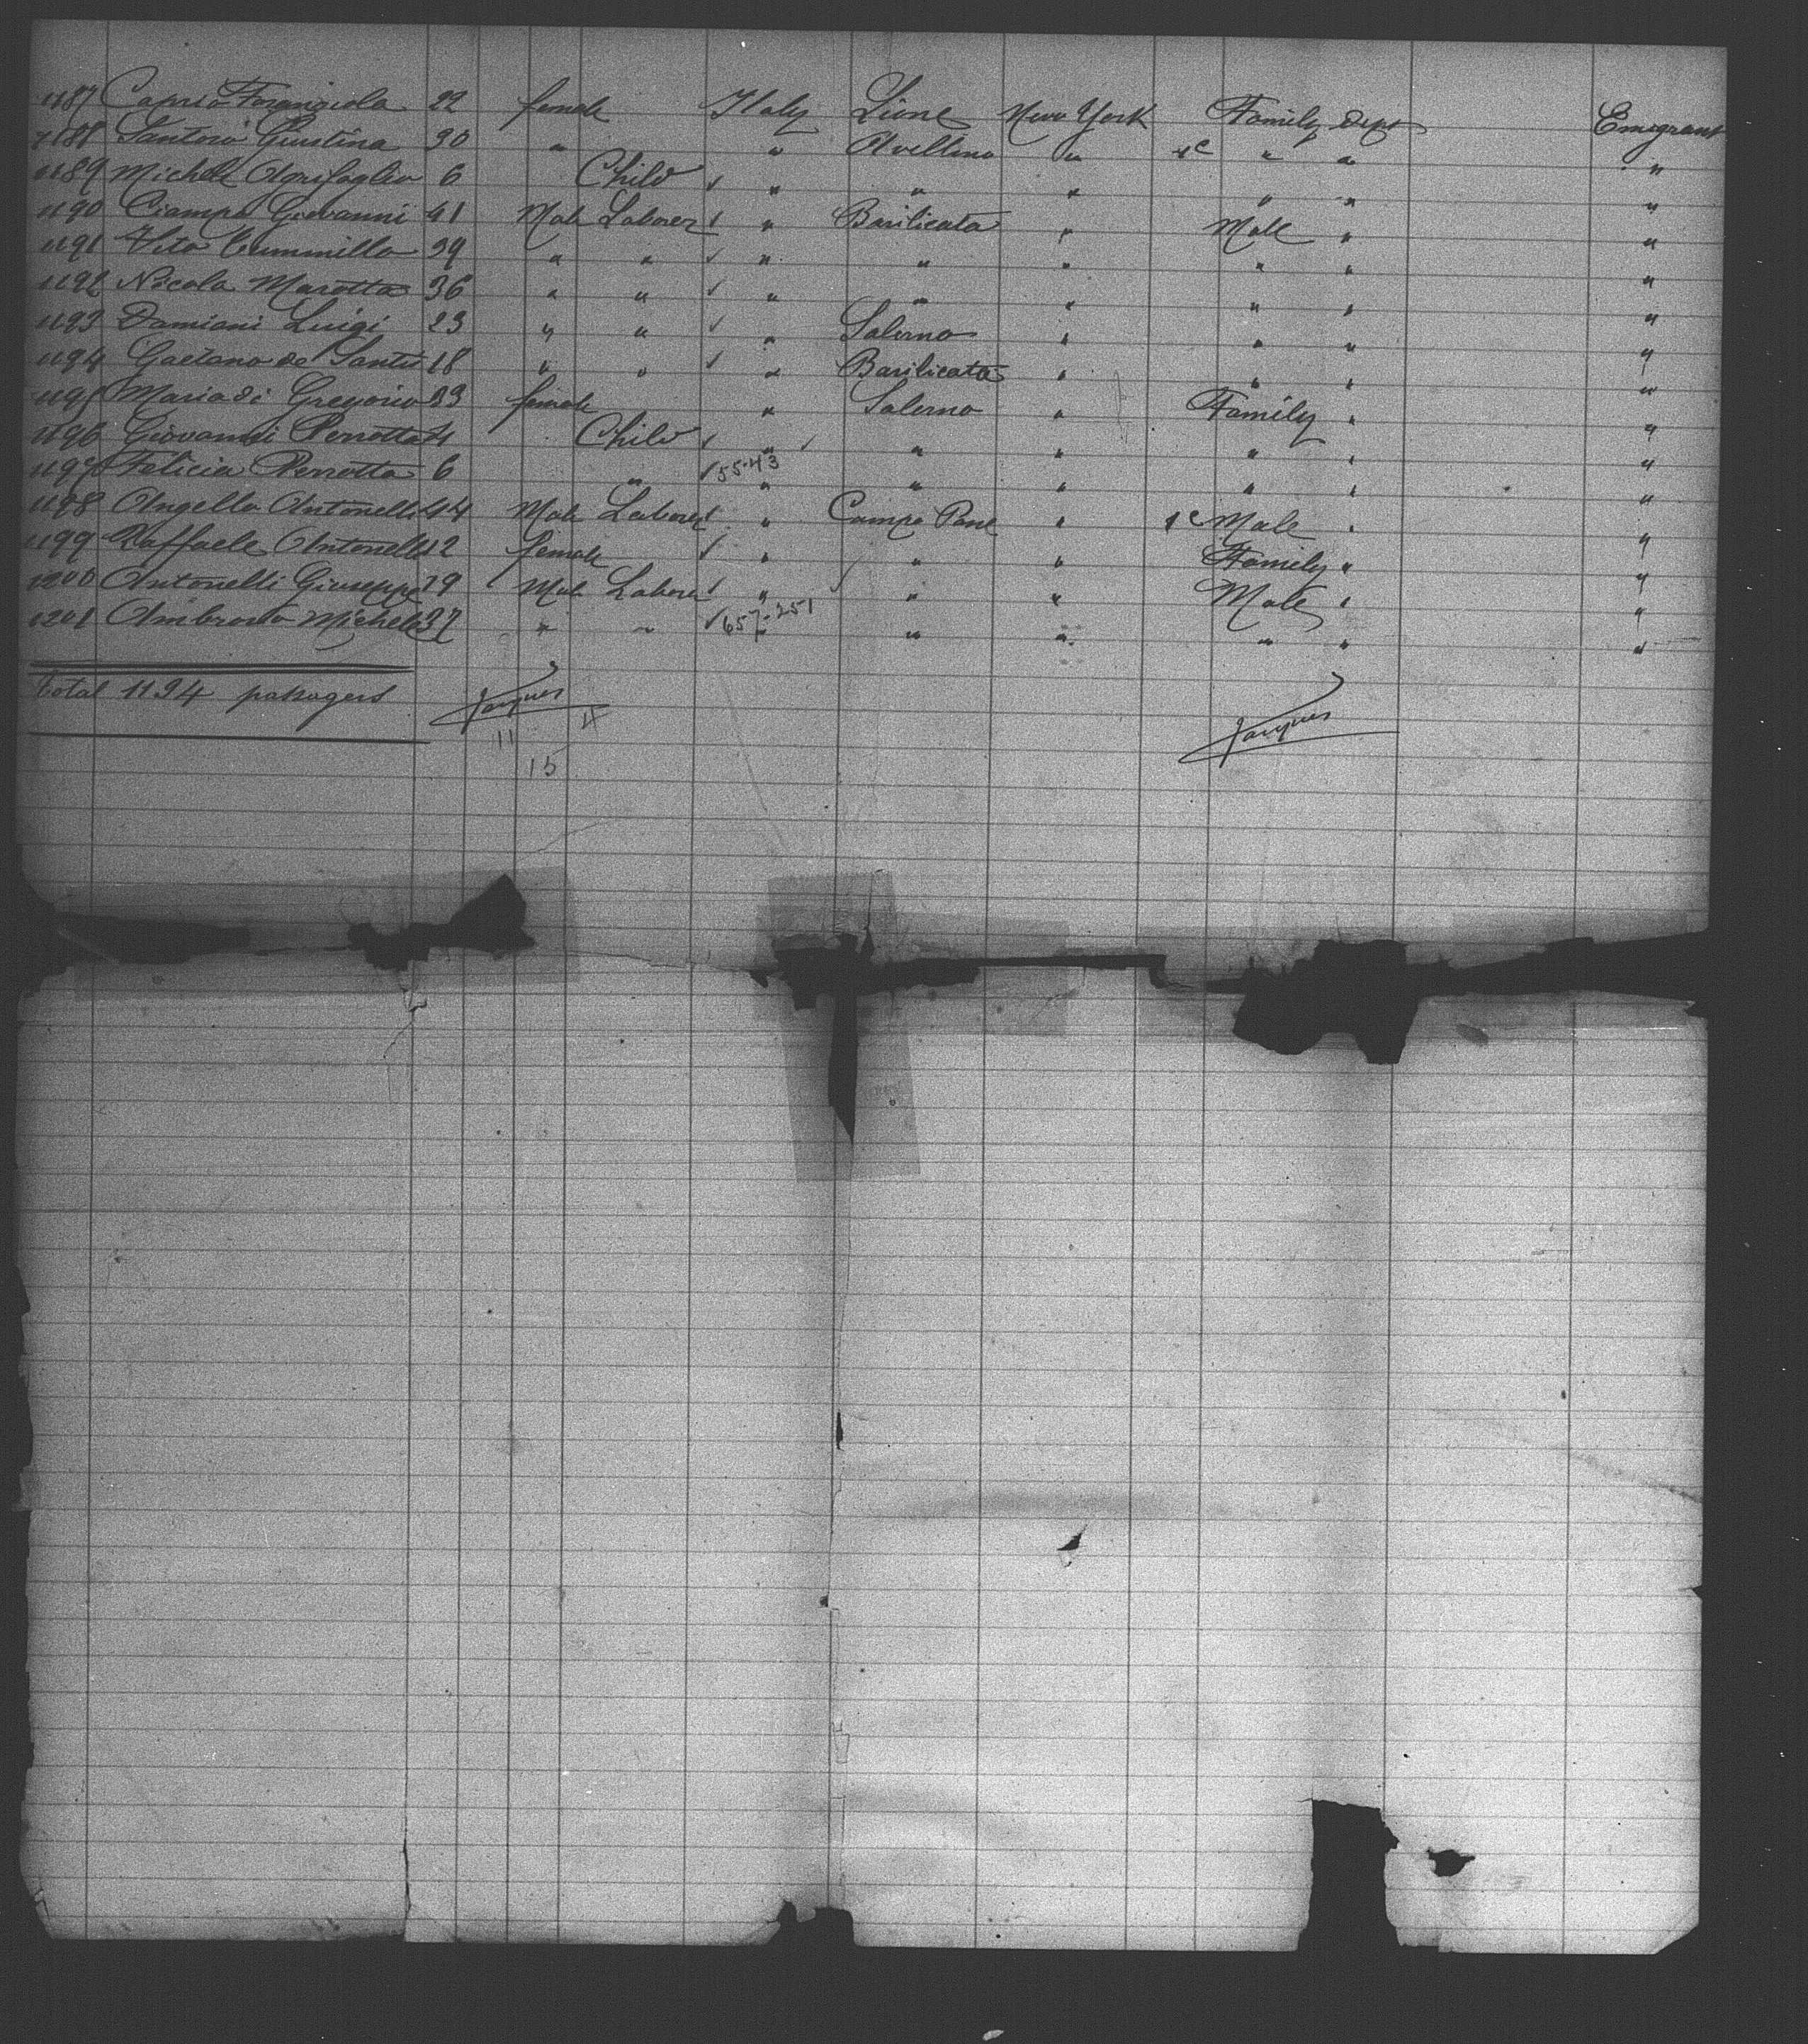 1187 Caprio 22 female Italy Lione New York Family Dept Emigrant
1188 Santoro Giustina 30 " " Avellino " 1c " " "
1189 Michele 6 Child ✓ " " " " " "
1190 Ciampa Giovanni 41 Male Laborer ✓ " Basilicata " Male " "
1191 Vito Cummillo 39 " " ✓ " " " " " "
1192 Nicola Marotta 36 " " ✓ " " " " " "
1193 Damiani Luigi 23 " " ✓ " Salerno " " " "
1194 Gaetano de Santis 18 " " ✓ " Basilicata " " " "
1195 Maria di Gregorio 33 female " Salerno " Family " "
1196 Giovanni Perrotta 4 Child ✓ " ✓ " " " " "
1197 Felicia Perrotta 6 " ✓ 55-43 " " " " " "
1198 Angello Antonelli 44 Male Laborer ✓ " Campo Pane " 1c Male " "
1199 Raffaele Antonelli 12 female ✓ " " " Family " "
1200 Antonelli Giuseppe 19 Male Laborer ✓ " " " Male " "
1201 Ambrosio Michele 37 " " ✓ 657-251 " " " " " "
total 1194 passagers Jacques Jacques
11 4
15